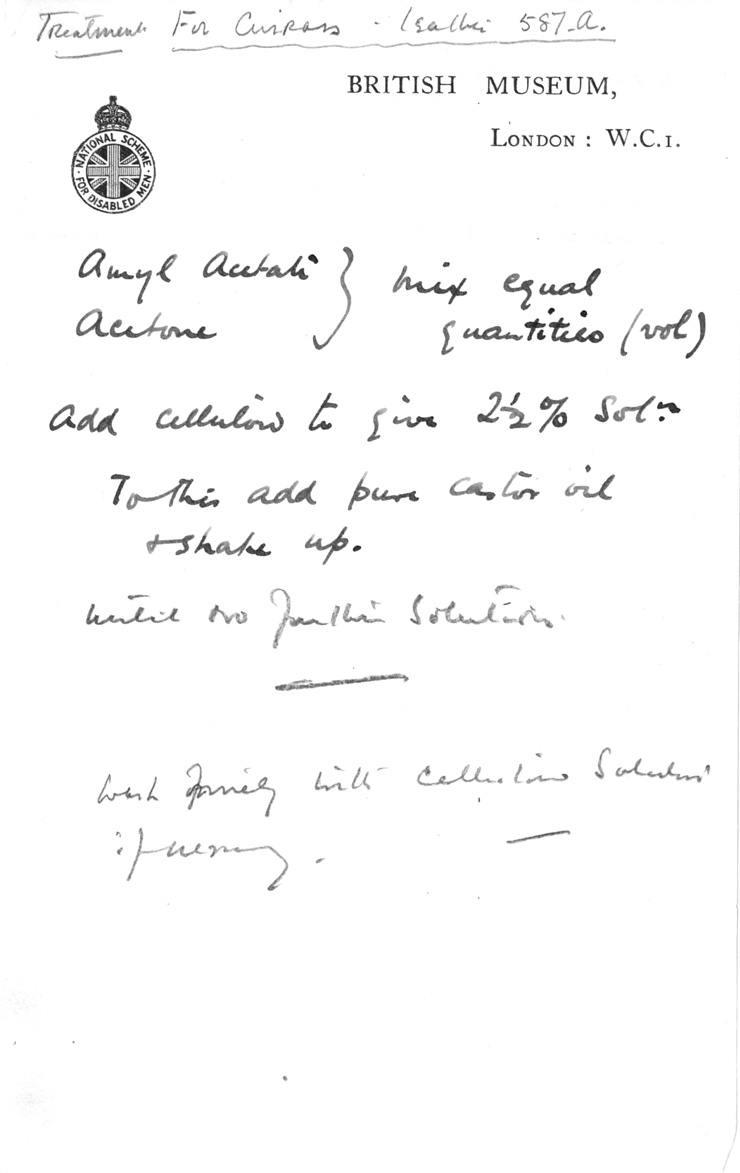 Treatment For Cuirass - Leather 587.A.
BRITISH MUSEUM,
LONDON : W.C.1.
NATIONAL SCHEME
FOR DISABLED MEN
Amyl Acetate } mix equal
Acetone quantities (vol)
Add celluloid to give 2½% Solⁿ.
To this add pure castor oil
+ shake up.
until no further Solution.
Wash finely with Celluloid Solution
if necessary.